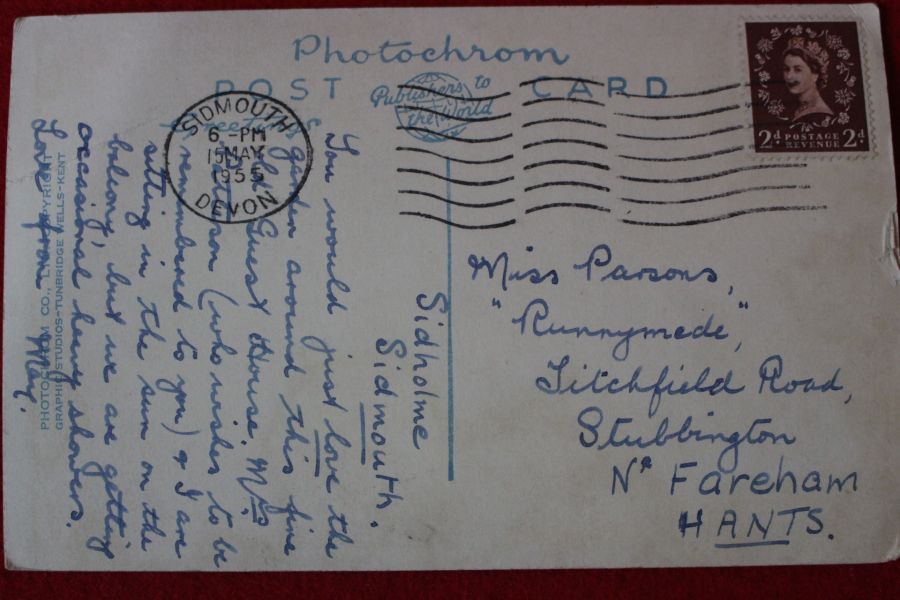 Photochrom
POST CARD
Publishers to
the World
SIDMOUTH
6 - PM
15 MAY
1955
DEVON
2d POSTAGE 2d
REVENUE
Sidholme
Sidmouth.
You would just love the
garden around this fine
old Guest House. Mrs
(who wishes to be
remembered to you) & I are
sitting in the sun on the
balcony, but we are getting
occasional heavy showers.
Love from May.
Miss Parsons,
"Runnymede",
Titchfield Road,
Stubbington
Nr Fareham
HANTS.
PHOTOCHROM CO., LTD. COPYRIGHT
GRAPHIC STUDIOS-TUNBRIDGE WELLS-KENT